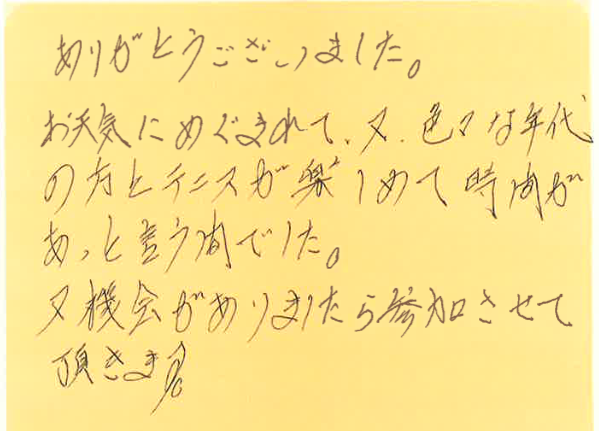 ありがとうございました。
お天気にめぐまれて、又、色々な年代
の方とテニスが楽しめて時間が
あっと言う間でした。
又機会がありましたら参加させて
頂きます。